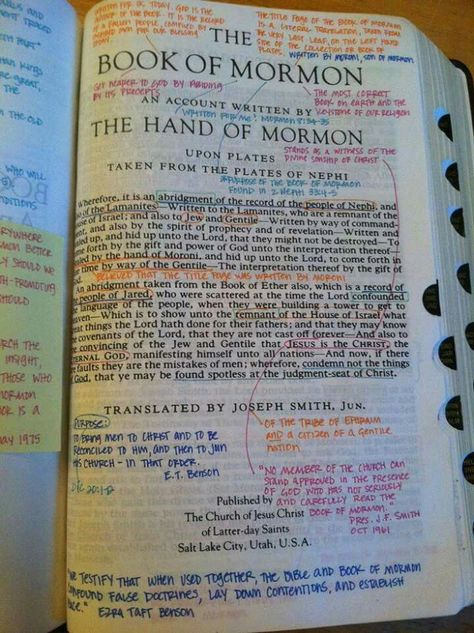 WRITTEN FOR US TODAY. GOD IS THE
AUTHOR OF THE BOOK. IT IS THE RECORD
OF A FALLEN PEOPLE, COMPILED BY
INSPIRED MEN FOR OUR BLESSING
TODAY.
THE TITLE PAGE OF THE BOOK OF MORMON
IS A LITERAL TRANSLATION, TAKEN FROM
THE VERY LAST LEAF, ON THE LEFT HAND
SIDE OF THE COLLECTION OR BOOK OF
PLATES. WRITTEN BY MORONI, SON OF MORMON
THE
BOOK OF MORMON
GET NEARER TO GOD BY ABIDING
BY ITS PRECEPTS
THE MOST CORRECT
BOOK ON EARTH AND THE
KEYSTONE OF OUR RELIGION
AN ACCOUNT WRITTEN BY
"WRITTEN FOR ME", MORMON 8:34-35
THE HAND OF MORMON
UPON PLATES
STANDS AS A WITNESS OF THE
DIVINE SONSHIP OF CHRIST
TAKEN FROM THE PLATES OF NEPHI
PURPOSE OF THE BOOK OF MORMON
FOUND IN 2 NEPHI 33:4-5
Wherefore, it is an abridgment of the record of the people of Nephi, and
also of the Lamanites—Written to the Lamanites, who are a remnant of the
house of Israel; and also to Jew and Gentile—Written by way of command-
ment, and also by the spirit of prophecy and of revelation—Written and
sealed up, and hid up unto the Lord, that they might not be destroyed—To
come forth by the gift and power of God unto the interpretation thereof—
Sealed by the hand of Moroni, and hid up unto the Lord, to come forth in
due time by way of the Gentile—The interpretation thereof by the gift of
God.
BELIEVED THAT THE TITLE PAGE WAS WRITTEN BY MORONI
An abridgment taken from the Book of Ether also, which is a record of
the people of Jared, who were scattered at the time the Lord confounded
the language of the people, when they were building a tower to get to
heaven—Which is to show unto the remnant of the House of Israel what
great things the Lord hath done for their fathers; and that they may know
the covenants of the Lord, that they are not cast off forever—And also to
the convincing of the Jew and Gentile that JESUS is the CHRIST, the
ETERNAL GOD, manifesting himself unto all nations—And now, if there
are faults they are the mistakes of men; wherefore, condemn not the things
of God, that ye may be found spotless at the judgment-seat of Christ.
TRANSLATED BY JOSEPH SMITH, JUN.
OF THE TRIBE OF EPHRAIM
AND A CITIZEN OF A GENTILE
NATION
PURPOSE:
TO BRING MEN TO CHRIST AND TO BE
RECONCILED TO HIM, AND THEN TO JOIN
HIS CHURCH - IN THAT ORDER.
E.T. BENSON
D&C 20:1-2
"NO MEMBER OF THE CHURCH CAN
STAND APPROVED IN THE PRESENCE
OF GOD WHO HAS NOT SERIOUSLY
AND CAREFULLY READ THE
BOOK OF MORMON."
PRES. J.F. SMITH
OCT 1961
Published by
The Church of Jesus Christ
of Latter-day Saints
Salt Lake City, Utah, U.S.A.
"WE TESTIFY THAT WHEN USED TOGETHER, THE BIBLE AND BOOK OF MORMON
CONFOUND FALSE DOCTRINES, LAY DOWN CONTENTIONS, AND ESTABLISH
PEACE." EZRA TAFT BENSON
WHO WILL
MORMON BETTER
SHOULD WE
INSIGHT,
THOSE WHO
MORMON
BOOK IS A
MAY 1975